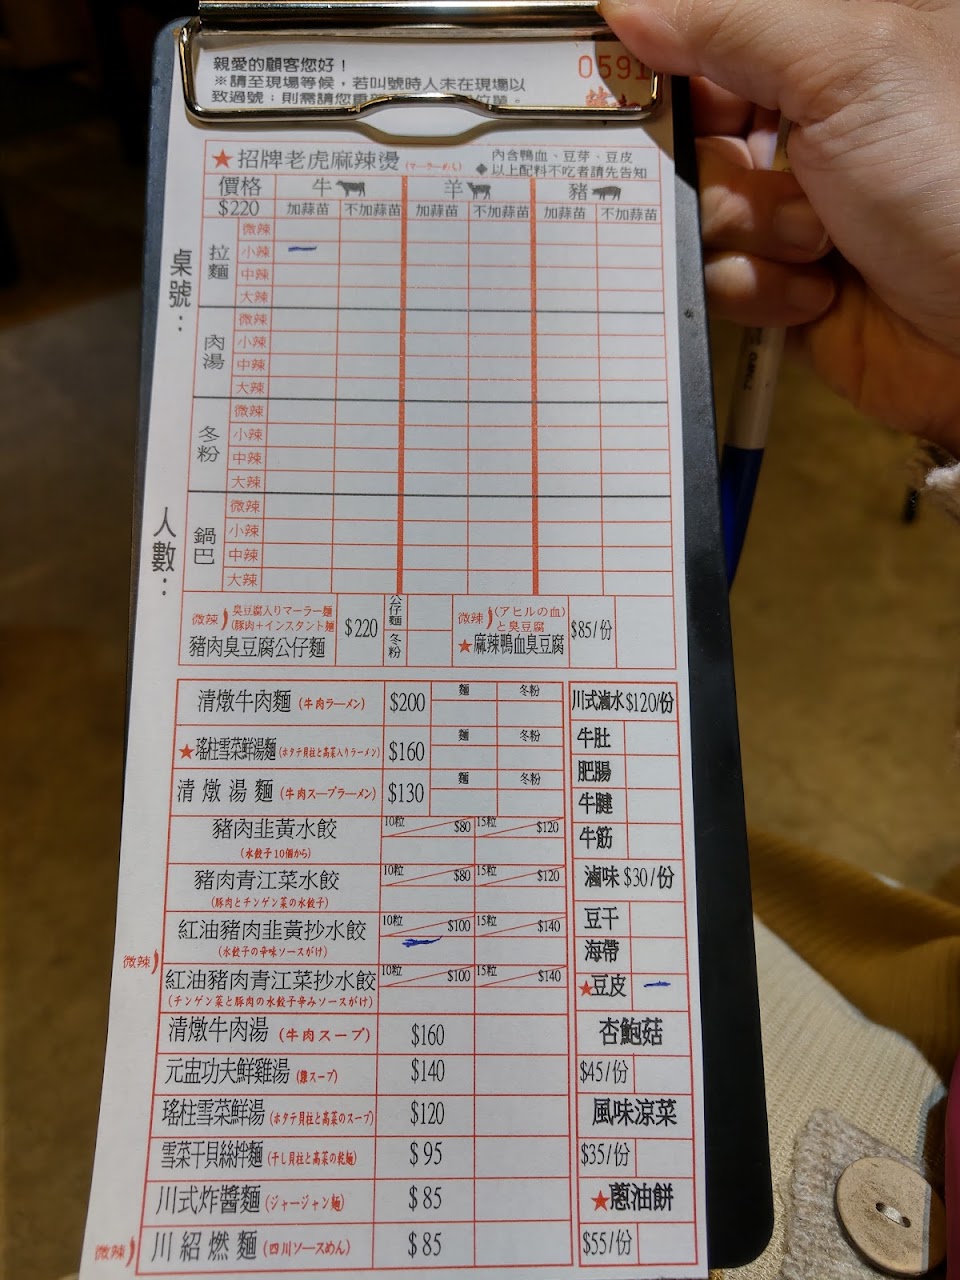 親愛的顧客您好！
※請至現場等候，若叫號時人未在現場以
致過號；則需請您重
0591
★招牌老虎麻辣燙
內含鴨血、豆芽、豆皮
◆以上配料不吃者請先告知
價格 牛 羊 豬
$220 加蒜苗 不加蒜苗 加蒜苗 不加蒜苗 加蒜苗 不加蒜苗
桌號：
人數：
拉麵
微辣
小辣
中辣
大辣
肉湯
微辣
小辣
中辣
大辣
冬粉
微辣
小辣
中辣
大辣
鍋巴
微辣
小辣
中辣
大辣
微辣 臭豆腐入りマーラー麺
(豚肉+インスタント麺
豬肉臭豆腐公仔麵 $220 公仔麵 冬粉
微辣 (アヒルの血)
と臭豆腐
★麻辣鴨血臭豆腐 $85/份
清燉牛肉麵 (牛肉ラーメン) $200 麵 冬粉
★瑤柱雪菜鮮湯麵 (ホタテ貝柱と高菜入りラーメン) $160 麵 冬粉
清燉湯麵 (牛肉スープラーメン) $130 麵 冬粉
豬肉韭黃水餃 10粒 $80 15粒 $120
(水餃子10個から)
豬肉青江菜水餃 10粒 $80 15粒 $120
(豚肉とチンゲン菜の水餃子)
紅油豬肉韭黃抄水餃 10粒 $100 15粒 $140
(水餃子の辛味ソースがけ)
微辣
紅油豬肉青江菜抄水餃 10粒 $100 15粒 $140
(チンゲン菜と豚肉の水餃子辛みソースがけ)
清燉牛肉湯 (牛肉スープ) $160
元盅功夫鮮雞湯 (雞スープ) $140
瑤柱雪菜鮮湯 (ホタテ貝柱と高菜のスープ) $120
雪菜干貝絲拌麵 (干し貝柱と高菜の乾麺) $95
川式炸醬麵 (ジャージャン麺) $85
微辣 川紹燃麵 (四川ソースめん) $85
川式滷水 $120/份
牛肚
肥腸
牛腱
牛筋
滷味 $30/份
豆干
海帶
★豆皮
杏鮑菇
$45/份
風味涼菜
$35/份
★蔥油餅
$55/份